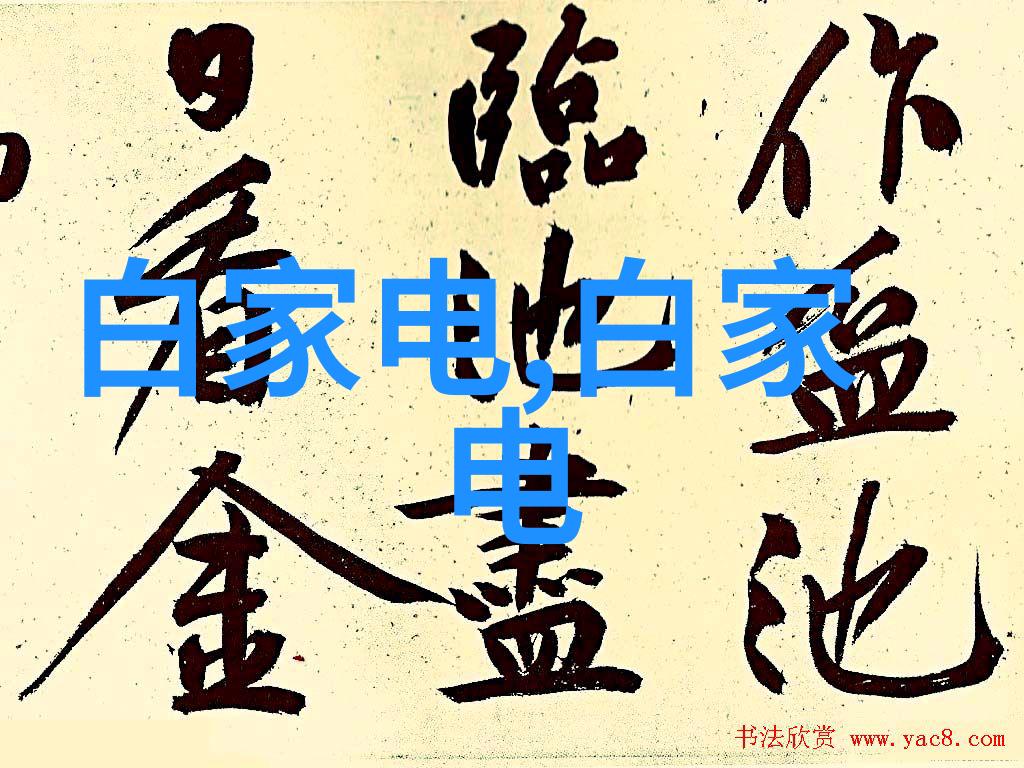 作盆池
臨池盡
日看金
白家电,白家
电
书法欣赏 www.yac8.com